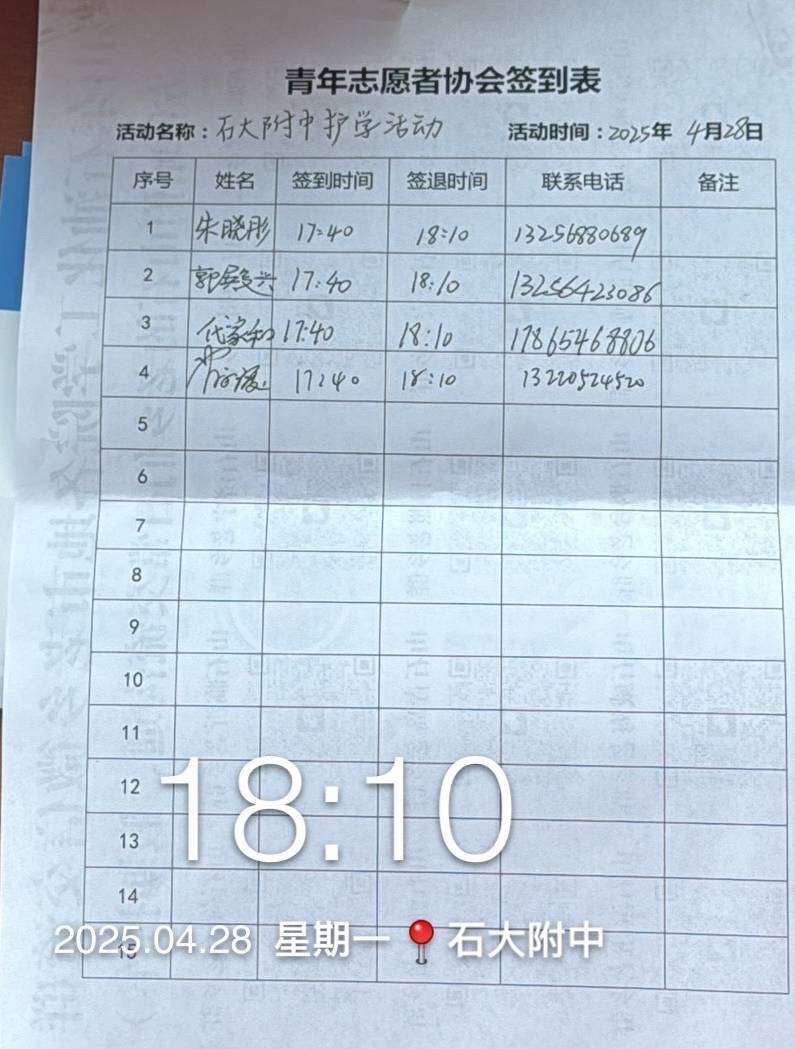 青年志愿者协会签到表
活动名称：石大附中护学活动 活动时间：2025年 4月28日
序号 姓名 签到时间 签退时间 联系电话 备注
1 朱晓彤 17:40 18:10 13256880689
2 17:40 18:10 13256423086
3 代家和 17:40 18:10 17865468806
4 17:40 18:10 13220524520
5
6
7
8
9
10
11
12
13
14
15
18:10
2025.04.28 星期一 石大附中